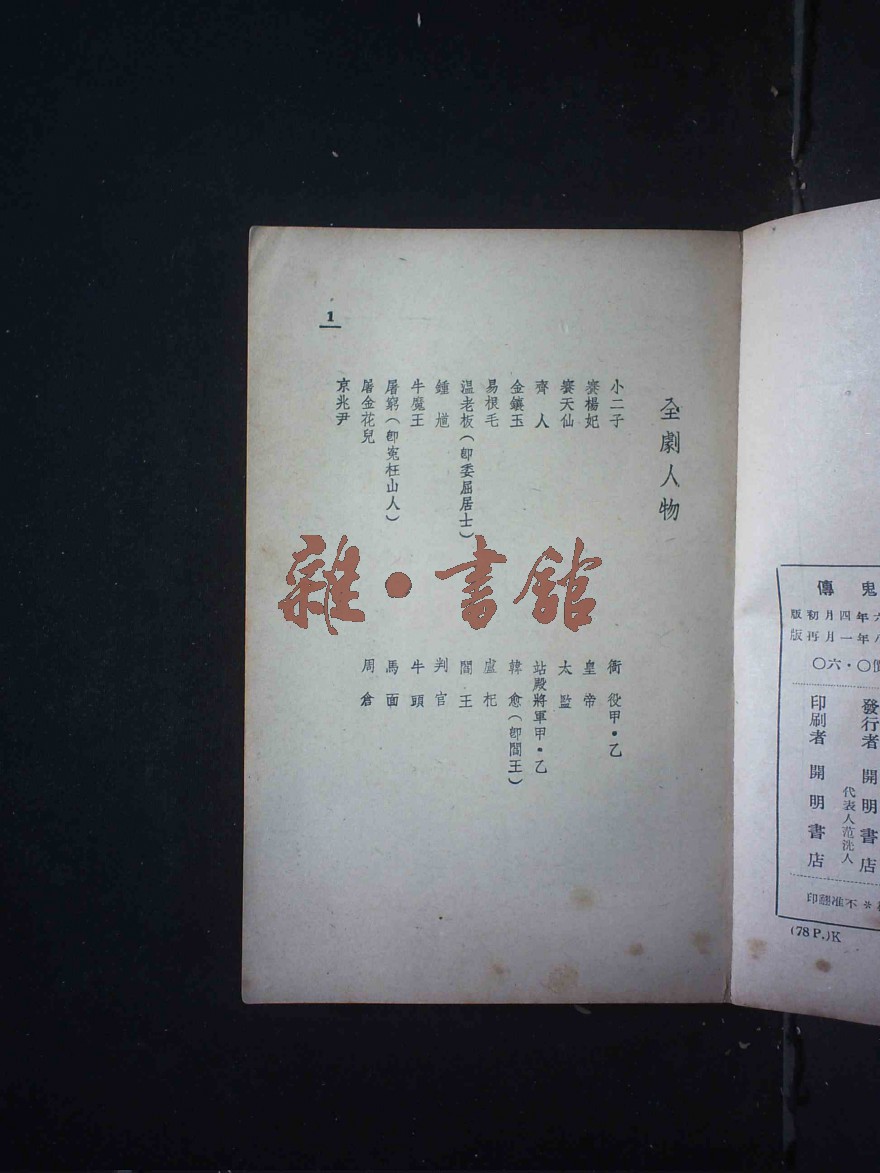 全劇人物
小二子
賽楊妃
賽天仙
齊人
金鑲玉
易根毛
溫老板（卽委屈居士）
鍾馗
牛魔王
屠窮（卽寃枉山人）
屠金花兒
京兆尹
衙役甲·乙
皇帝
太監
站殿將軍甲·乙
韓愈（卽閻王）
盧杞
閻王
判官
牛頭
馬面
周倉
1
雜·書館
鬼傳
年四月初版
年一月再版
〇·六〇
發行者 開明書店
代表人范洗人
印刷者 開明書店
＊不准翻印
(78 P.)K